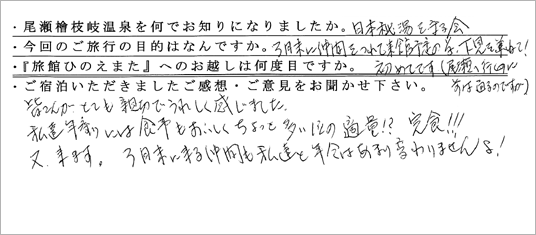 ・尾瀬檜枝岐温泉を何でお知りになりましたか。日本秘湯を守る会
・今回のご旅行の目的はなんですか。3月末に仲間をつれて来館予定の為、下見を兼ねて!
・『旅館ひのえまた』へのお越しは何度目ですか。初めてです(尾瀬へ行くのに
・ご宿泊いただきましたご感想・ご意見をお聞かせ下さい。前は通るのですが)
皆さんがとても親切でうれしく感じました。
私達年寄りには食事もおいしくちょっと多い位の適量!? 完食!!!
又、来ます。3月末に来る仲間も私達と年令はあまり変わりませんよ!